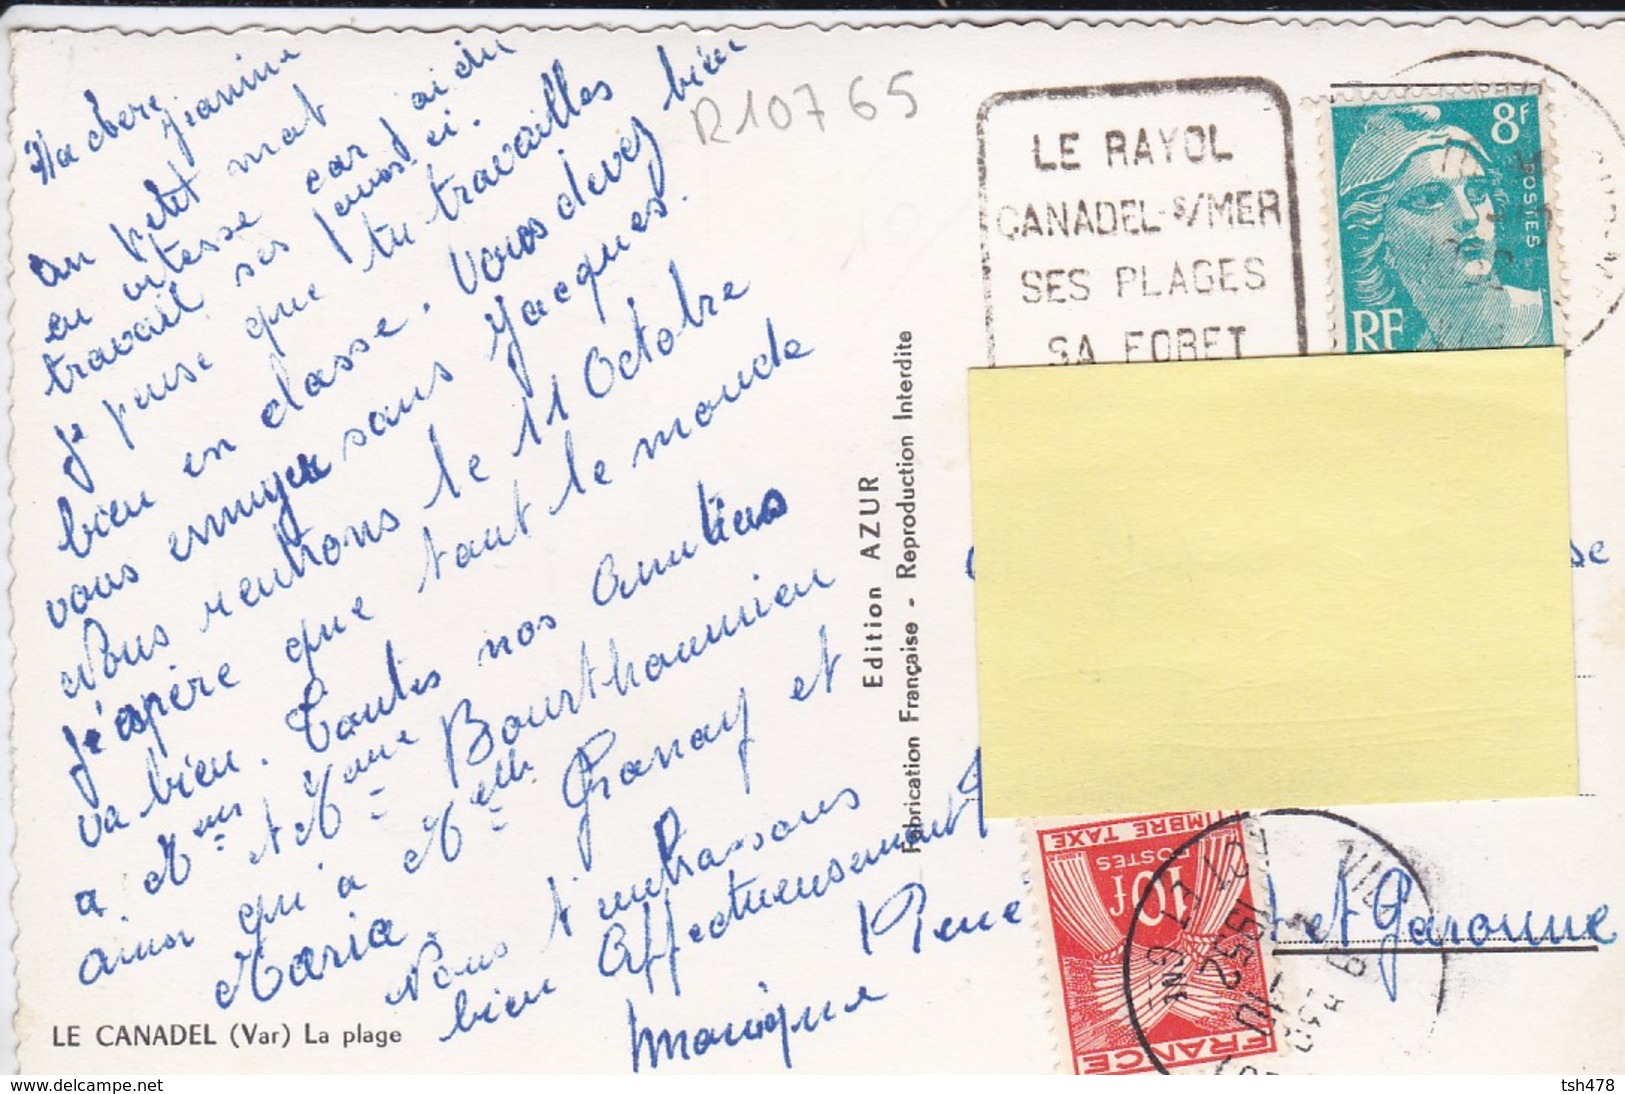 Ma chere Jeannine
un petit mot
en vitesse car j'ai du
travail ses jours ci.
Je pense que tu travailles bien
bien en classe. Vous devez
vous ennuyer sans Jacques.
Nous rentrons le 11 Octobre
J'espère que tout le monde
va bien. Toutes nos amitiés
a Mr et Mme Bourthoumieu
ainsi qu'a Melle Granay et
Maria.
Nous t'embrassons
bien Affectueusement
René
Monique
LE CANADEL (Var) La plage
R10765
Edition AZUR
Fabrication Française - Reproduction Interdite
LE RAYOL
CANADEL-S/MER
SES PLAGES
SA FORET
8F
POSTES
RF
se
et Garonne
TIMBRE TAXE
POSTES
10F
FRANCE
1952
tsh478